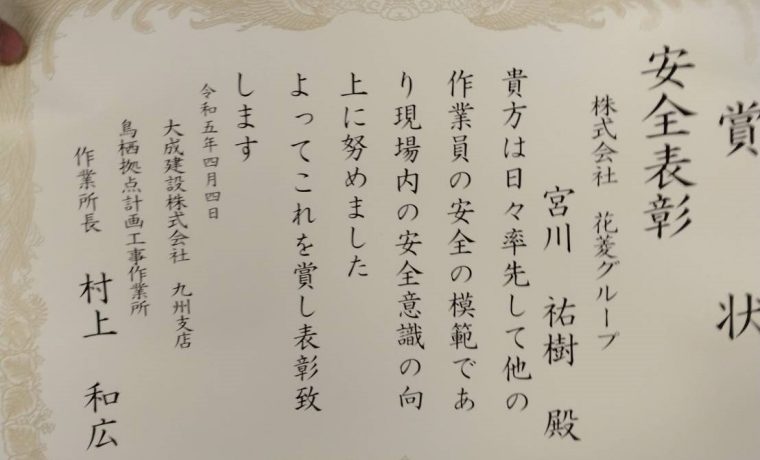 賞状
安全表彰
株式会社 花菱グループ
宮川 祐樹 殿
貴方は日々率先して他の
作業員の安全の模範であ
り現場内の安全意識の向
上に努めました
よってこれを賞し表彰致
します
令和五年四月四日
大成建設株式会社 九州支店
鳥栖拠点計画工事作業所
作業所長 村上 和広